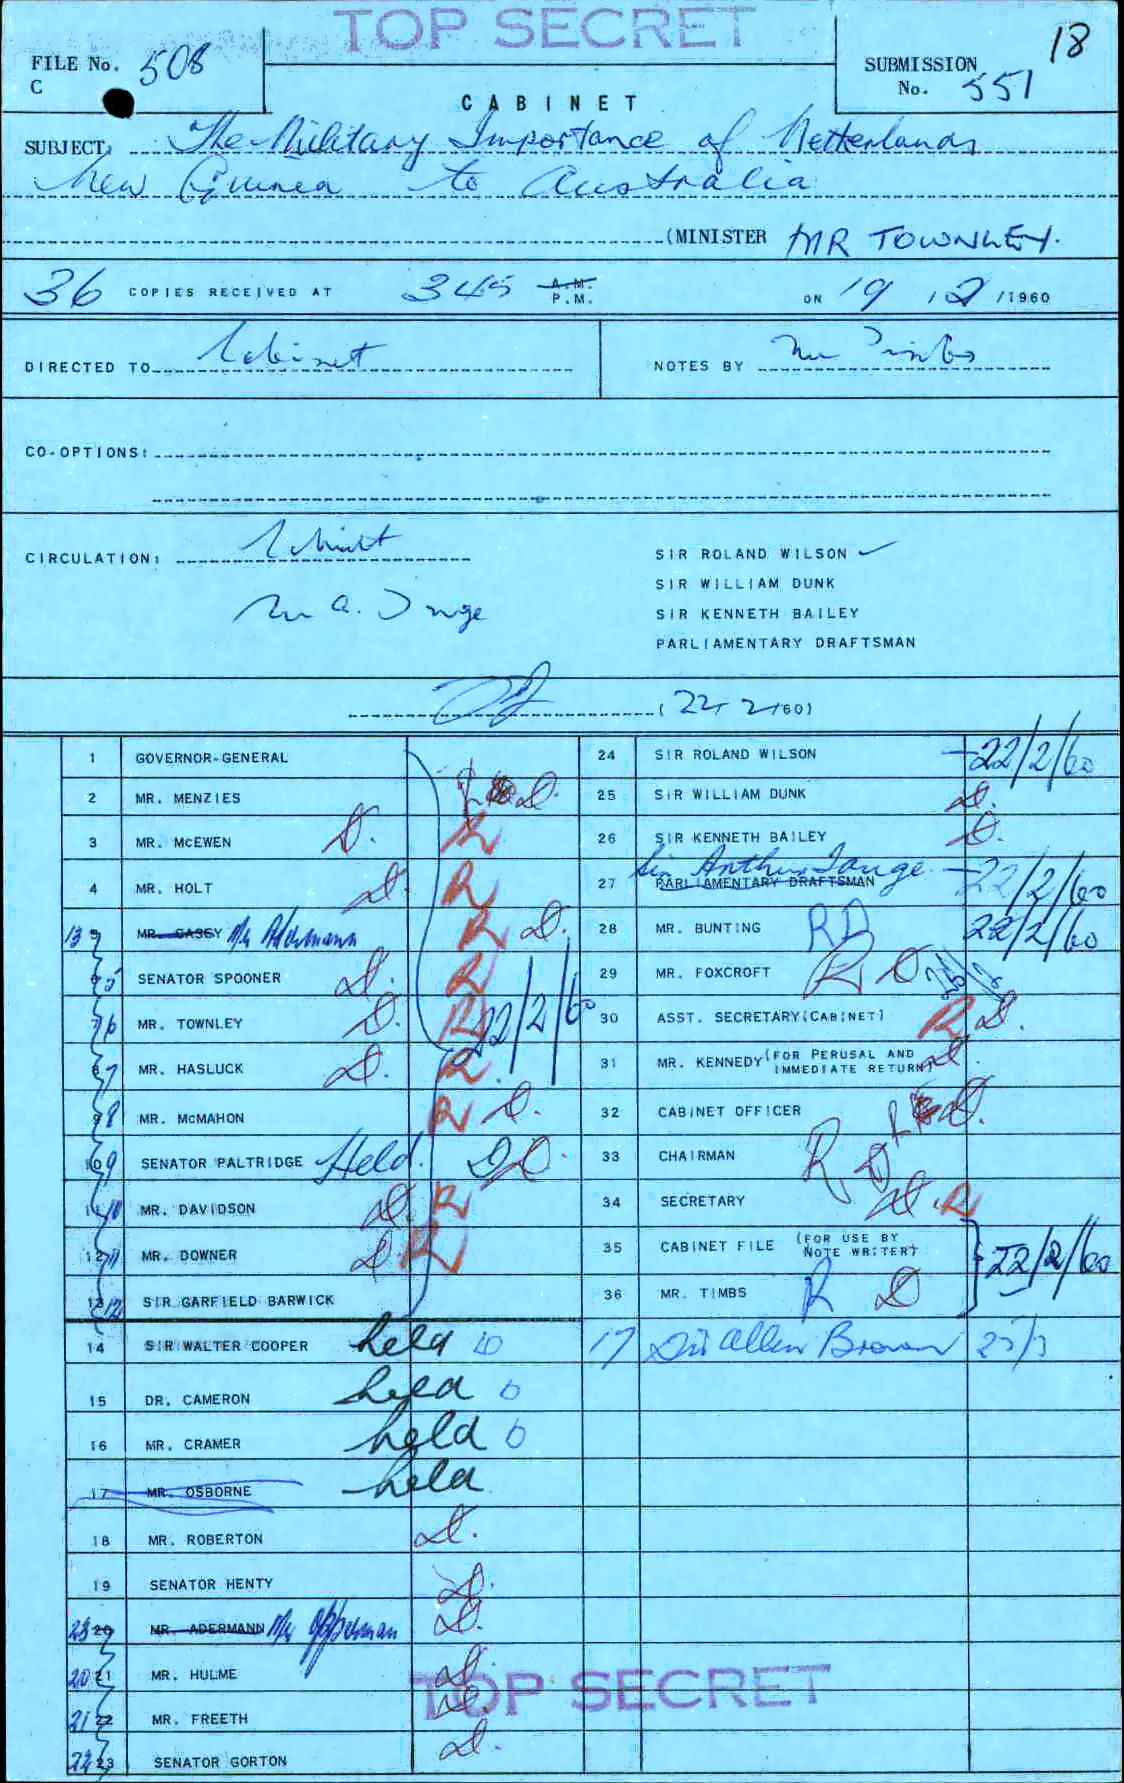 TOP SECRET
18
FILE No. 508
C
SUBMISSION
No. 551
CABINET
SUBJECT: The Military Importance of Netherlands
New Guinea to Australia
(MINISTER MR TOWNLEY.
36 COPIES RECEIVED AT 345 A.M.
P.M.
ON 19 / 2 /1960
DIRECTED TO Cabinet
NOTES BY Mr Timbs
CO-OPTIONS:
CIRCULATION: Cabinet
SIR ROLAND WILSON
SIR WILLIAM DUNK
Mr A. Tange
SIR KENNETH BAILEY
PARLIAMENTARY DRAFTSMAN
(22/2/60)
1 GOVERNOR-GENERAL
2 MR. MENZIES R D.
3 MR. McEWEN D. R
4 MR. HOLT D. R
13 5 MR. CASEY Mr Adermann R D.
6 5 SENATOR SPOONER D. R
7 6 MR. TOWNLEY D. R 22/2/60
8 7 MR. HASLUCK D. R
9 8 MR. McMAHON R D.
10 9 SENATOR PALTRIDGE Held. D D.
11 10 MR. DAVIDSON D. R
12 11 MR. DOWNER D. R
13 12 SIR GARFIELD BARWICK
14 SIR WALTER COOPER held D
15 DR. CAMERON held D
16 MR. CRAMER held D
17 MR. OSBORNE held
18 MR. ROBERTON D.
19 SENATOR HENTY D.
23 20 MR. ADERMANN Mr Opperman D.
20 21 MR. HULME D.
21 22 MR. FREETH D.
22 23 SENATOR GORTON D.
24 SIR ROLAND WILSON 22/2/60
25 SIR WILLIAM DUNK D.
26 SIR KENNETH BAILEY D.
Sir Arthur Tange
27 PARLIAMENTARY DRAFTSMAN 22/2/60
28 MR. BUNTING R D 22/2/60
29 MR. FOXCROFT R D
30 ASST. SECRETARY (CABINET) R D.
31 MR. KENNEDY (FOR PERUSAL AND
IMMEDIATE RETURN) D.
32 CABINET OFFICER R D.
33 CHAIRMAN R D
34 SECRETARY D. R
35 CABINET FILE (FOR USE BY
NOTE WRITER) 22/2/60
36 MR. TIMBS R D
17 Sir Allen Brown
TOP SECRET